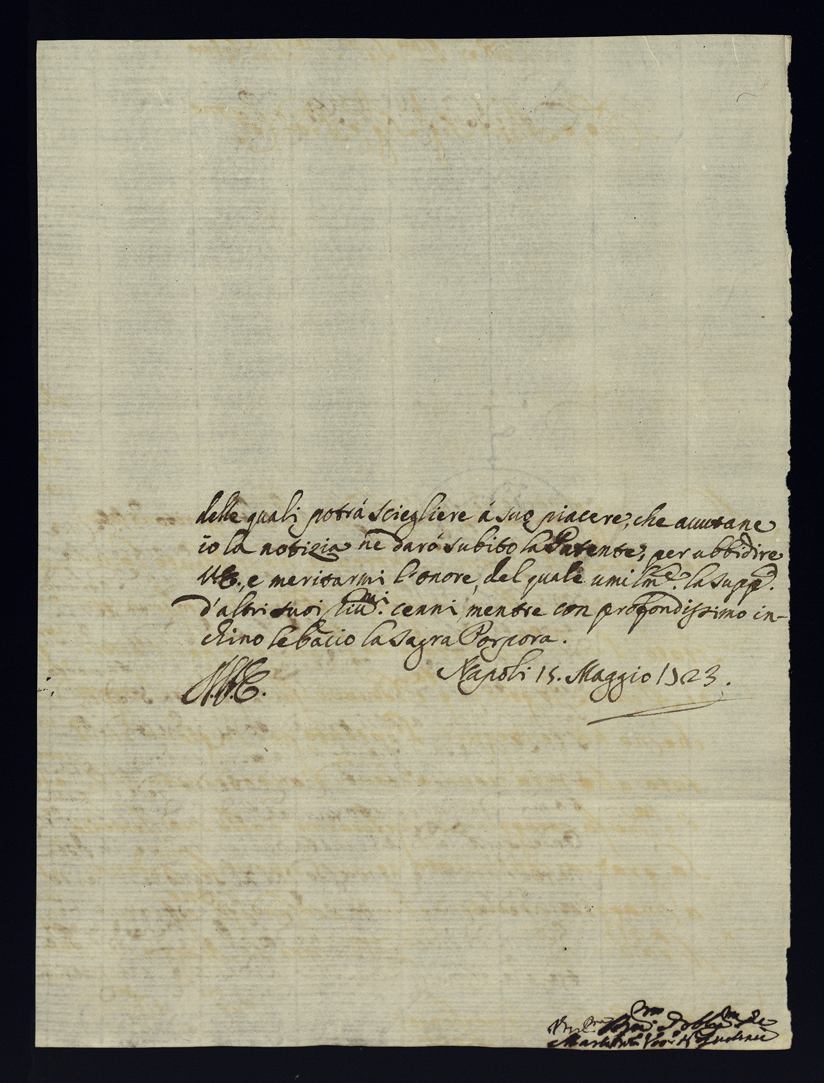 delle quali potrà sciegliere à suo piacere, che avutane
io la notizia ne darò subito la Patente, per ubbidire
VE. e meritarmi l'onore, del quale umilm.e la supp.co
d'altri suoi cenni, mentre con profondissimo in-
chino le bacio la Sagra Porpora.
Napoli 15. Maggio 1723.